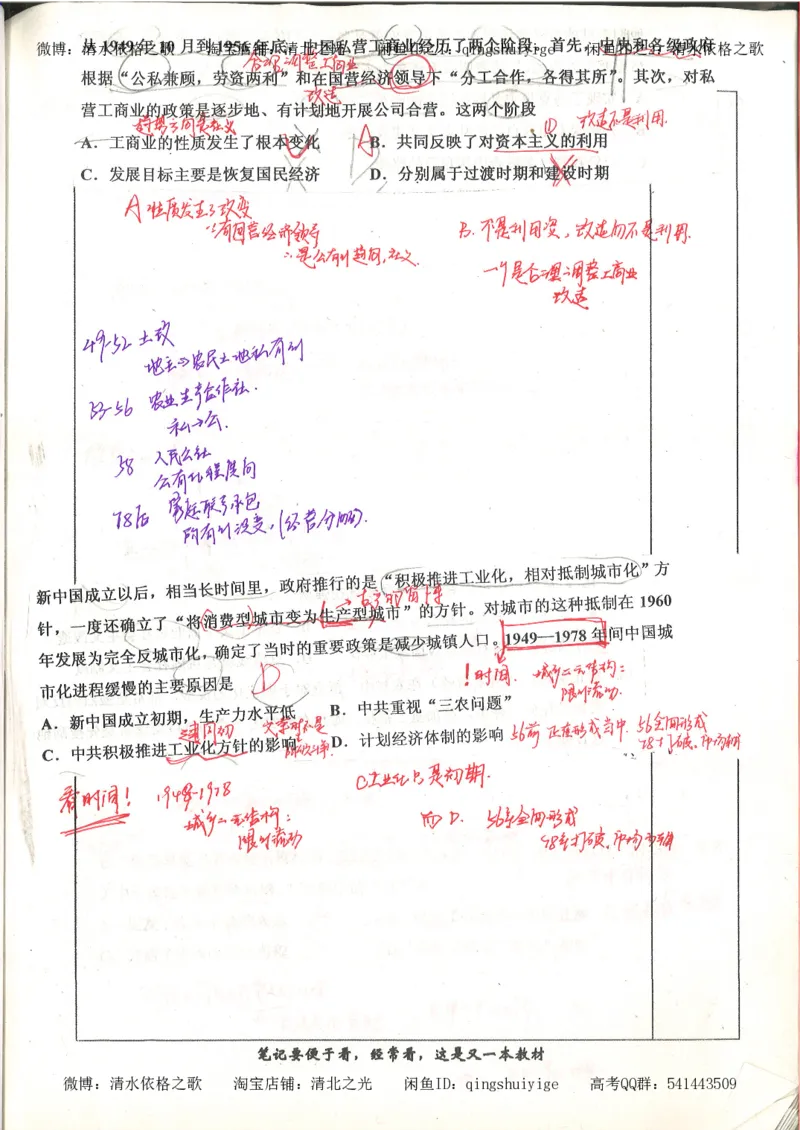 微博：清水依格之歌 淘宝店铺：清北之光 闲鱼ID：qingshuiyige 闲鱼ID：清水依格之歌
从1949年10月到1956年底，中国私营工商业经历了两个阶段。首先，中央和各级政府
合理调整工商业
根据“公私兼顾，劳资两利”和在国营经济领导下“分工合作，各得其所”。其次，对私
改造
营工商业的政策是逐步地、有计划地开展公私合营。这两个阶段
① 改造不是利用.
A．工商业的性质发生了根本变化 B．共同反映了对资本主义的利用
A
C．发展目标主要是恢复国民经济 D．分别属于过渡时期和建设时期
A 性质发生了改变
∵有国营经济领导
∴是公有制趋向,社义.
B. 不是利用资，改造而不是利用.
一个是合理调整工商业
改造
49-52 土改
地主→农民土地私有制
53-56 农业生产合作社.
私→公.
58 人民公社
公有化程度高
78后 家庭联产承包
所有制没变，(经营分配).
新中国成立以后，相当长时间里，政府推行的是“积极推进工业化，相对抵制城市化”方
针，一度还确立了“将消费型城市变为生产型城市”的方针。对城市的这种抵制在 1960
年发展为完全反城市化，确定了当时的重要政策是减少城镇人口。1949—1978 年间中国城
市化进程缓慢的主要原因是
D
！时间. 城乡二元结构：
限制流动.
A．新中国成立初期，生产力水平低 B．中共重视“三农问题”
建国初
C．中共积极推进工业化方针的影响 D．计划经济体制的影响
56前 正在形成当中. 56全面形成
78打破,市场
C工业化只是初期.
看时间！ 1949-1978
城乡二元结构：
限制流动
而 D. 56年全面形成
78年打破,市场
笔记要便于看，经常看，这是又一本教材
微博：清水依格之歌 淘宝店铺：清北之光 闲鱼ID：qingshuiyige 高考QQ群：541443509